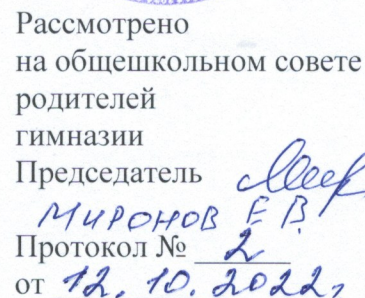 Рассмотрено
на общешкольном совете
родителей
гимназии
Председатель
Миронов Е В.
Протокол № 2
от 12. 10. 2022г